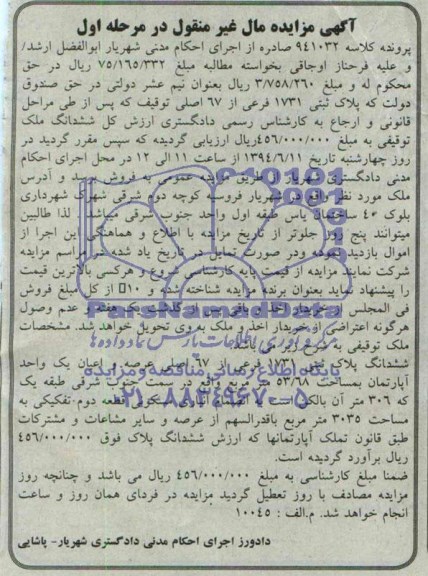 آگهی مزایده مال غیر منقول در مرحله اول
پرونده کلاسه ۹۴۱۰۳۲ صادره از اجرای احکام مدنی شهریار ابوالفضل ارشد/
و علیه فرحناز اوجاقی بخواسته مطالبه مبلغ ۷۵/۱۶۵/۳۳۲ ریال در حق
محکوم له و مبلغ ۳/۷۵۸/۲۶۰ ریال بعنوان نیم عشر دولتی در حق صندوق
دولت که پلاک ثبتی ۱۷۳۱ فرعی از ۶۷ اصلی توقیف که پس از طی مراحل
قانونی و ارجاع به کارشناس رسمی دادگستری ارزش کل ششدانگ ملک
توقیفی به مبلغ ۴۵۶/۰۰۰/۰۰۰ریال ارزیابی گردیده که سپس مقرر گردید در
روز چهارشنبه تاریخ ۱۳۹۴/۶/۱۱ از ساعت ۱۱ الی ۱۲ در محل اجرای احکام
مدنی دادگستری شهریار از طریق مزایده عمومی به فروش برسد و آدرس
ملک مورد نظر واقع در شهریار فردوسیه کوچه دوم شرقی شهرک شهرداری
بلوک ۴۰ ساختمان یاس طبقه اول واحد جنوب شرقی میباشد. لذا طالبین
میتوانند پنج روز جلوتر از تاریخ مزایده با اطلاع و هماهنگی این اجرا از
اموال بازدید نموده ودر صورت تمایل در تاریخ یاد شده در مراسم مزایده
شرکت نمایند مزایده از قیمت پایه کارشناسی شروع و هرکسی بالاترین قیمت
را پیشنهاد نماید بعنوان برنده مزایده شناخته شده و ۱۰٪ از کل مبلغ فروش
فی المجلس از خریدار اخذ و باقی پس از گذشت یک هفته و عدم وصول
هرگونه اعتراضی از خریدار اخذ و ملک به وی تحویل خواهد شد. مشخصات
ملک توقیفی به شرح زیر می باشد
ششدانگ پلاک ثبتی ۱۷۳۱ فرعی از ۶۷ اصلی عرصه و اعیان یک واحد
آپارتمان بمساحت ۵۳/۶۸ متر مربع واقع در سمت جنوب شرقی طبقه یک
که ۳۰۶ متر آن بالکن مسکونی قطعه دوم-تفکیکی به
مساحت ۳۰۳۵ متر مربع باقدرالسهم از عرصه و سایر مشاعات و مشترکات
طبق قانون تملک آپارتمانها که ارزش ششدانگ پلاک فوق ۴۵۶/۰۰۰/۰۰۰
ریال برآورد گردیده است.
ضمنا مبلغ کارشناسی به مبلغ ۴۵۶/۰۰۰/۰۰۰ ریال می باشد و چنانچه روز
مزایده مصادف با روز تعطیل گردید مزایده در فردای همان روز و ساعت
انجام خواهد شد. م.الف : ۱۰۰۴۵
دادورز اجرای احکام مدنی دادگستری شهریار- پاشایی
ParsNamadData
پایگاه اطلاع رسانی مناقصه و مزایده
۰۲۱-۸۸۳۴۹۶۷۰-۵